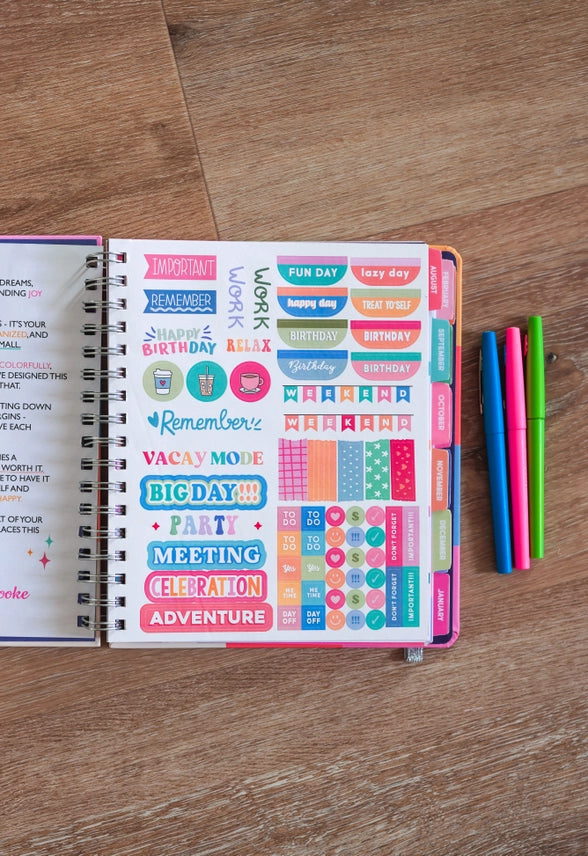 DREAMS,
NDING JOY
S - IT'S YOUR
ANIZED, AND
MALL.
COLORFULLY,
VE DESIGNED THIS
THAT.
TTING DOWN
RGINS -
VE EACH
ES A
WORTH IT.
E TO HAVE IT
ELF AND
HAPPY.
T OF YOUR
LACES THIS
ooke
IMPORTANT
REMEMBER
WORK
WORK
HAPPY
BIRTHDAY
RELAX
Remember
VACAY MODE
BIG DAY!!!
PARTY
MEETING
CELEBRATION
ADVENTURE
FUN DAY
lazy day
happy day
TREAT YO'SELF
BIRTHDAY
BIRTHDAY
Birthday
BIRTHDAY
WEEKEND
WEEKEND
TO DO
TO DO
TO DO
TO DO
Yes
Yes
ME TIME
ME TIME
DAY OFF
DAY OFF
$
!!!
$
!!!
$
!!!
DON'T FORGET
IMPORTANT!!!
DON'T FORGET
IMPORTANT!!!
FEBRUARY
AUGUST
SEPTEMBER
OCTOBER
NOVEMBER
DECEMBER
JANUARY